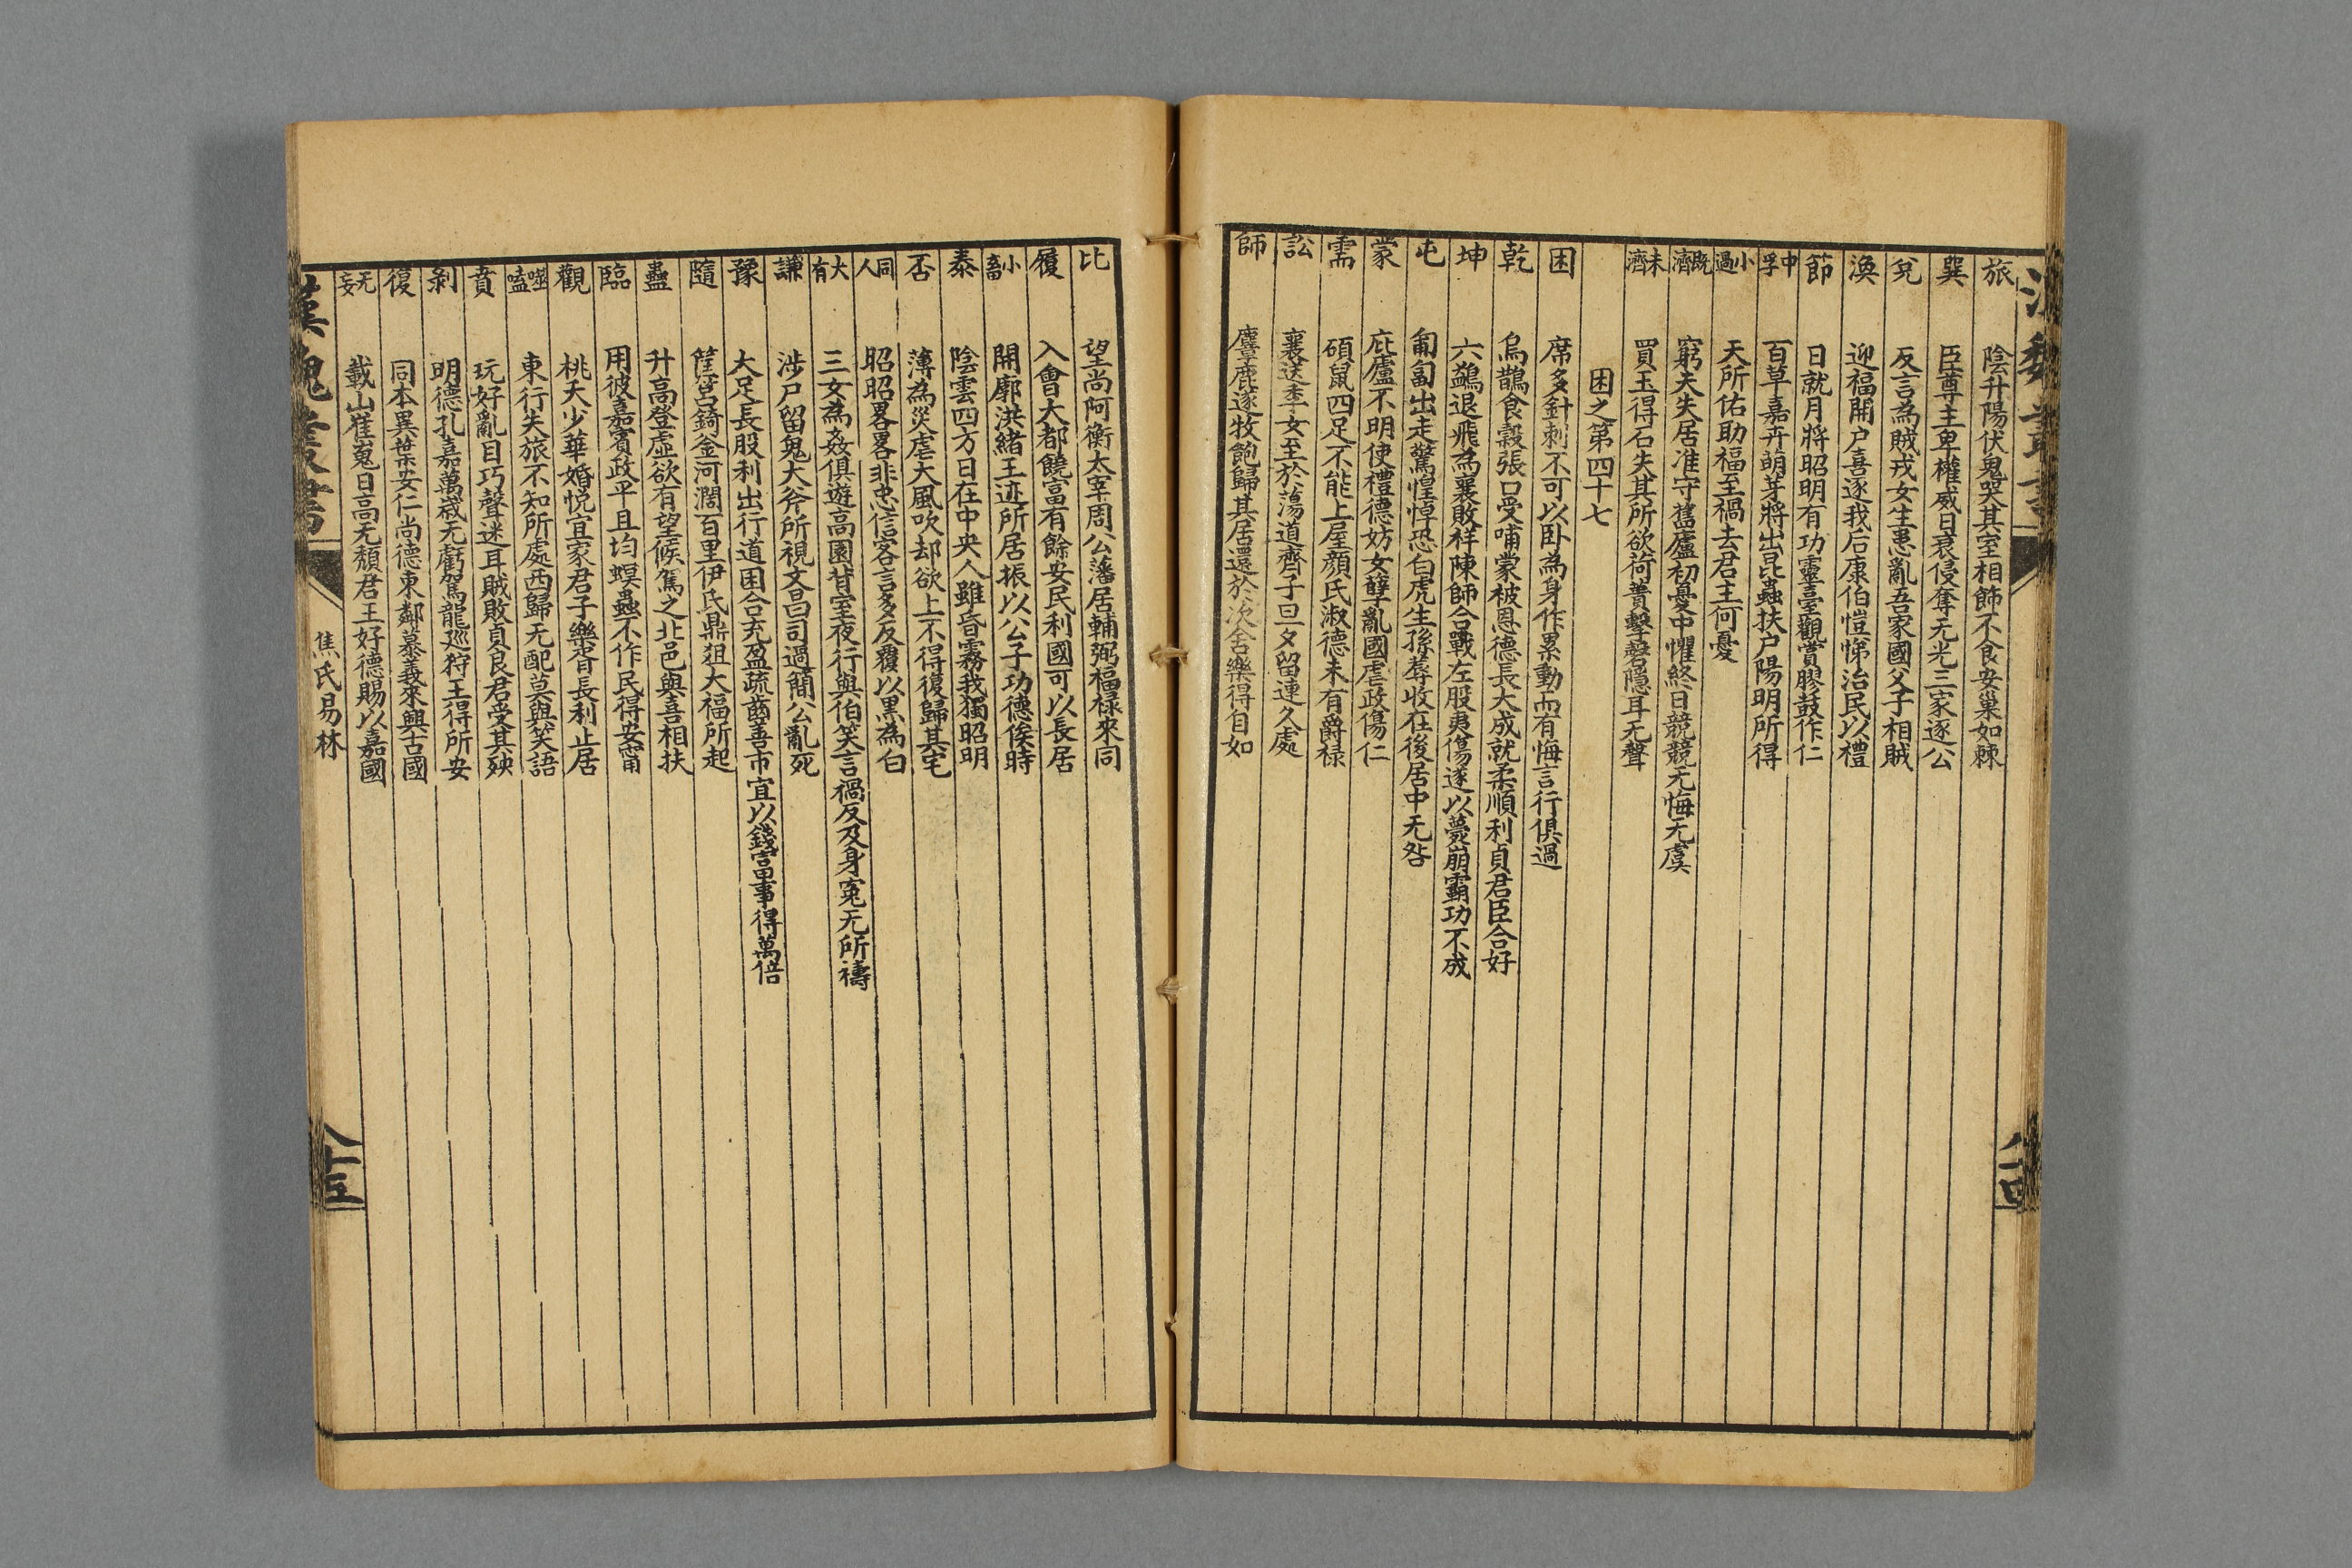 旅 陰升陽伏鬼哭其室相飾不食安巢如棘
巽 臣尊主卑權威日衰侵奪无光三家逐公
兌 反言為賊戎女生患亂吾家國父子相賊
渙 迎福開户喜逐我后康伯愷悌治民以禮
節 日就月將昭明有功靈臺觀賞膠鼓作仁
中孚 百草嘉卉萌芽將出昆蟲扶户陽明所得
小過 天所佑助福至禍去君王何憂
既濟 窮夫失居准守舊廬初憂中懼終日兢兢无悔无虞
未濟 買玉得石失其所欲荷蕢擊磬隱耳无聲
困之第四十七
困 席多針刺不可以卧為身作累動而有悔言行俱過
乾 烏鵲食穀張口受哺蒙被恩德長大成就柔順利貞君臣合好
坤 六鷁退飛為襄敗祥陳師合戰左股夷傷遂以薨崩霸功不成
屯 匍匐出走驚惶悼恐白虎生孫蓐收在後居中无咎
蒙 庇廬不明使禮德妨女孽亂國虐政傷仁
需 碩鼠四足不能上屋顏氏淑德未有爵禄
訟 襄送季女至於蕩道齊子旦夕留連久處
師 麞鹿逐牧飽歸其居還於次舍樂得自如
比 望尚阿衡太宰周公藩居輔弼福禄來同
履 入會大都饒富有餘安民利國可以長居
小畜 開廓洪緒王迹所居振以公子功德俟時
泰 陰雲四方日在中央人雖昏霧我獨昭明
否 薄為災虐大風吹却欲上不得復歸其宅
同人 昭昭畧畧非忠信客言多反覆以黑為白
大有 三女為姦俱遊高園背室夜行與伯笑言禍反及身寃无所禱
謙 涉尸留鬼大斧所視文昌司過簡公亂死
豫 大足長股利出行道困合充盈疏齒善市宜以錢富事得萬倍
隨 筐筥錡釜河濶百里伊氏鼎俎大福所起
蠱 升高登虛欲有望候駕之北邑與喜相扶
臨 用彼嘉賓政平且均螟蟲不作民得安甯
觀 桃夭少華婚悦宜家君子樂胥長利止居
噬嗑 東行失旅不知所處西歸无配莫與笑語
賁 玩好亂目巧聲迷耳賊敗貞良君受其殃
剝 明德孔嘉萬歲无虧駕龍巡狩王得所安
復 同本異葉安仁尚德東鄰慕義來興古國
无妄 載山崔嵬日高无頹君王好德賜以嘉國
漢魏叢書 焦氏易林 八十五